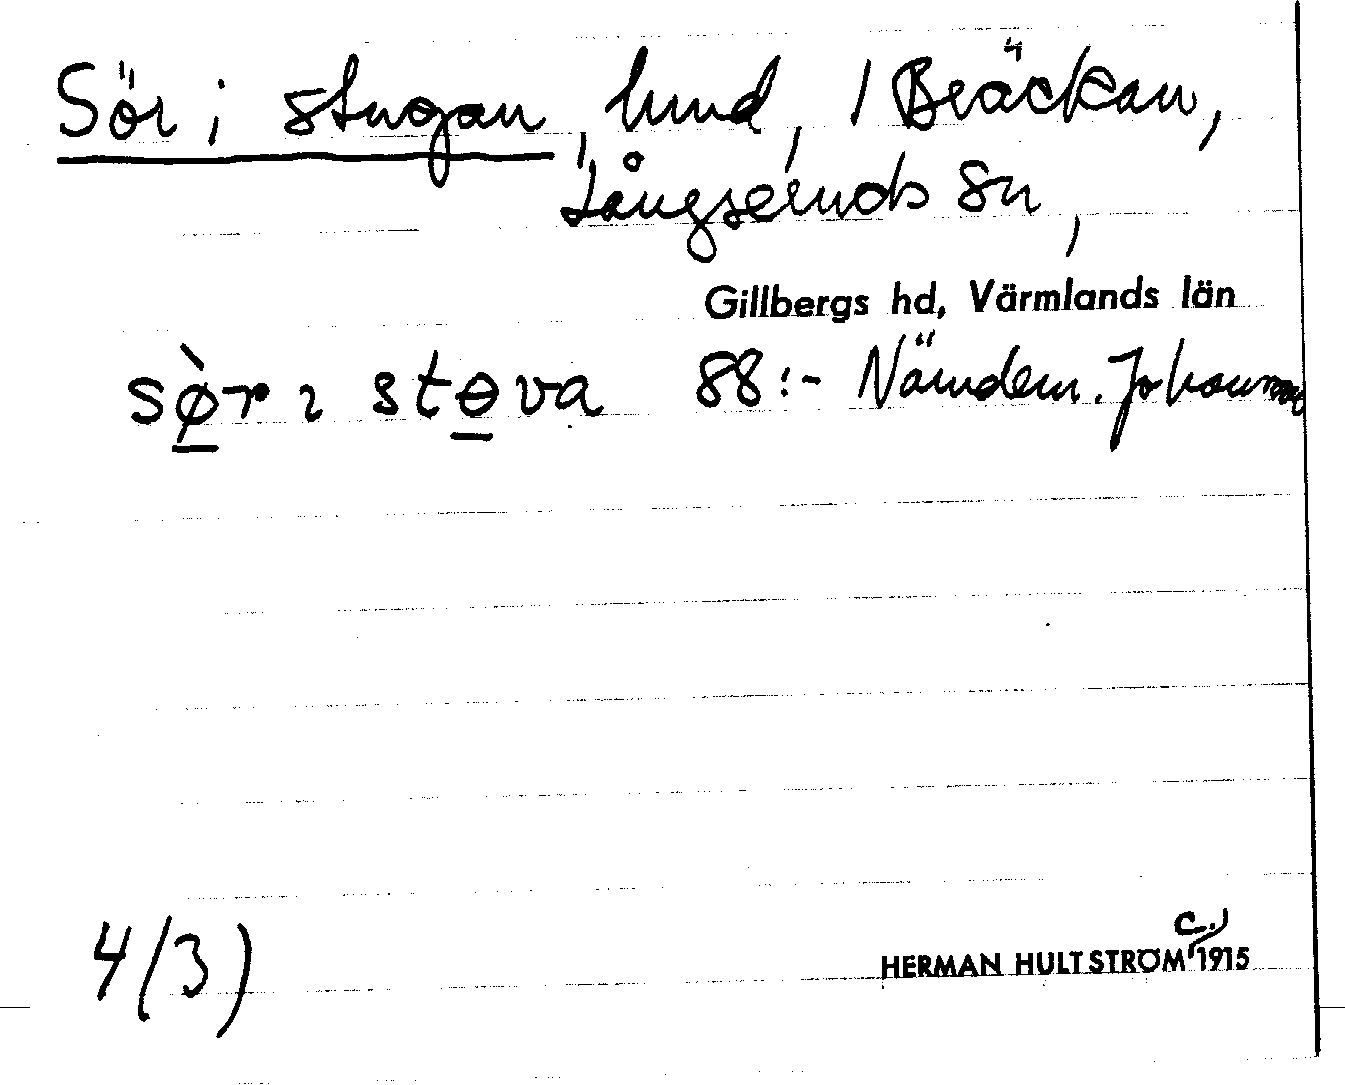 Sör i stugan, hmd, 1 Bräckan,
Långseruds sn,
Gillbergs hd, Värmlands län
sø̀r ɩ stɵva 88:- Nämdem. Johannes
4(3)
HERMAN HULTSTRÖM c. 1915